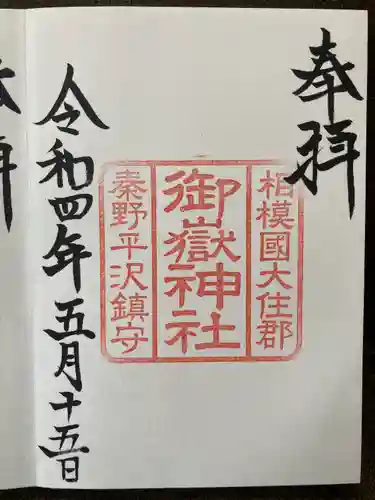 奉拝
相模國大住郡
御嶽神社
秦野平沢鎮守
令和四年五月十五日